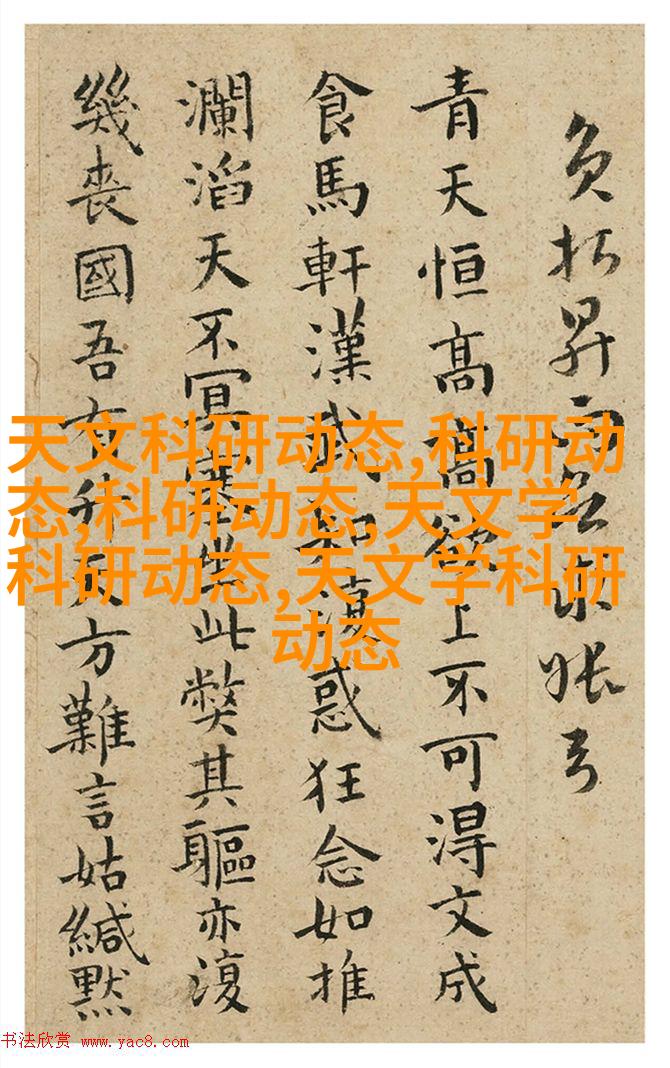 天文科研动态,科研动
态,科研动态,天文学
科研动态,天文学科研
动态
昇
青天恒高高欲上不可得文成
食馬軒漢武復惑狂念如推
瀾滔天不冥此弊其軀亦復
幾喪國吾有方難言姑緘默
书法欣赏 www.yac8.com